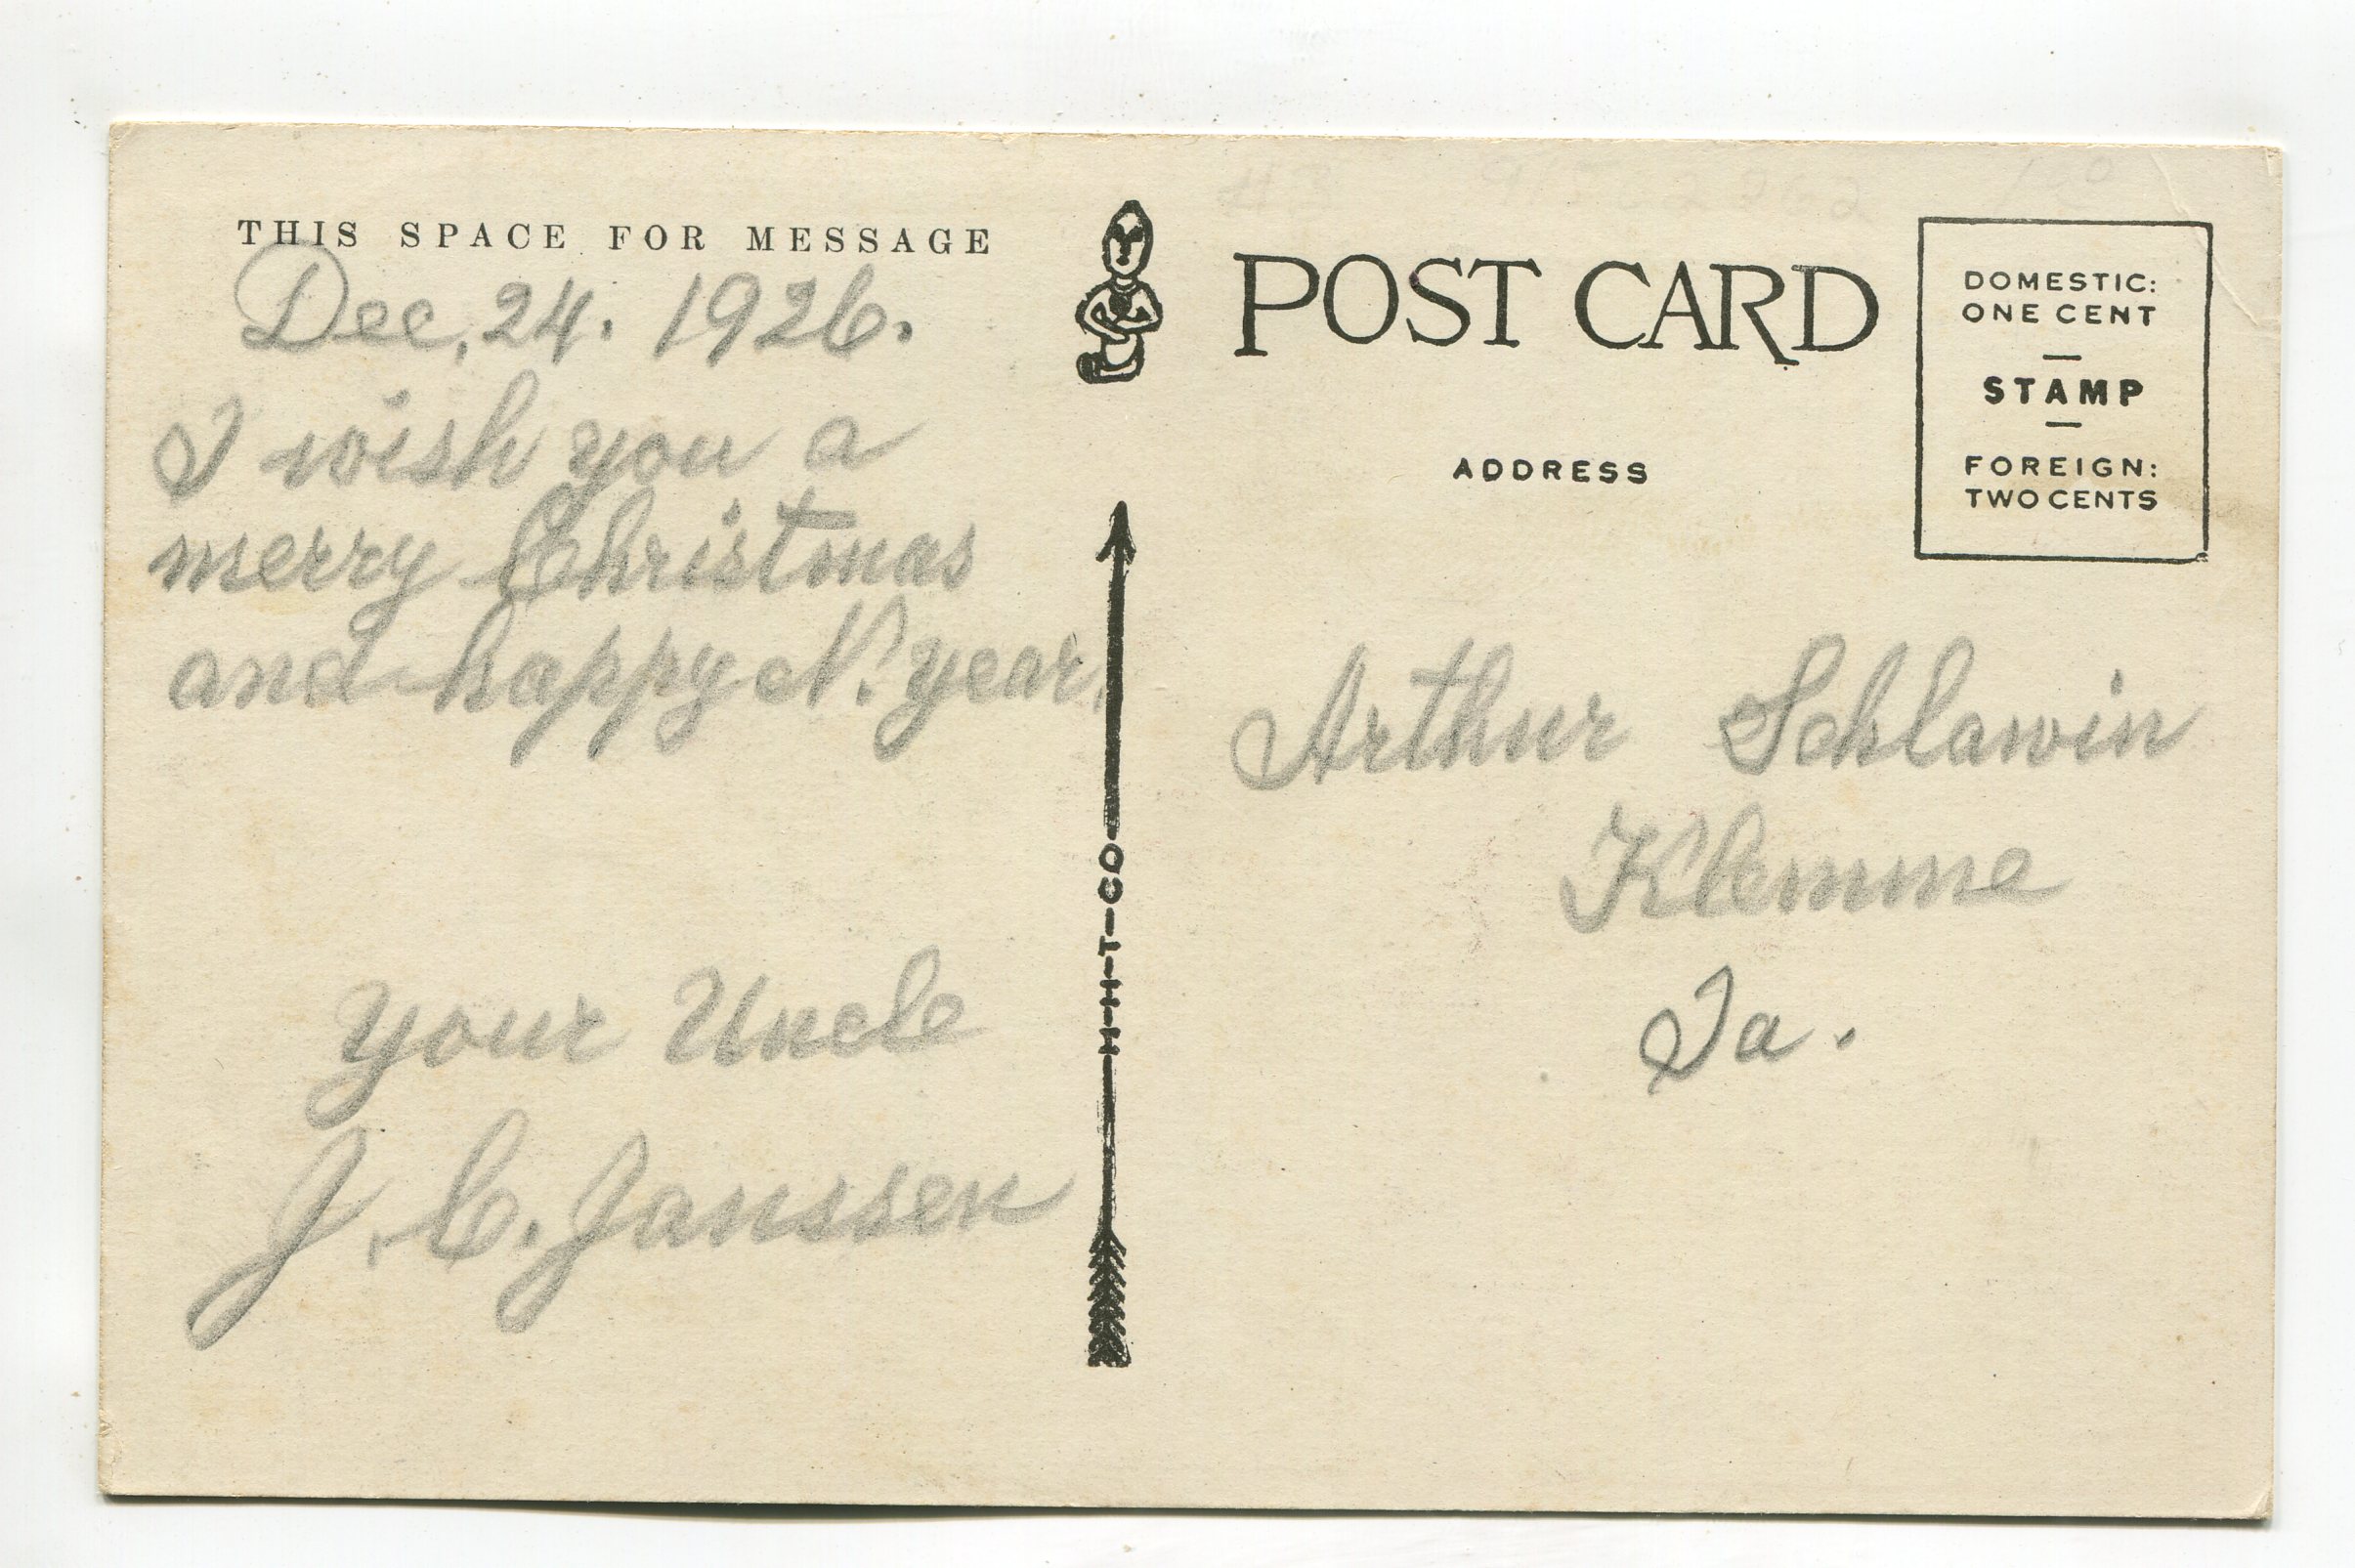 THIS SPACE FOR MESSAGE
Dec, 24. 1926.
I wish you a
merry Christmas
and happy N. year.
your Uncle
J. C. Janssen
H-H-T-CO
POST CARD
ADDRESS
DOMESTIC:
ONE CENT
STAMP
FOREIGN:
TWO CENTS
Arthur Schlawin
Klemme
Ia.